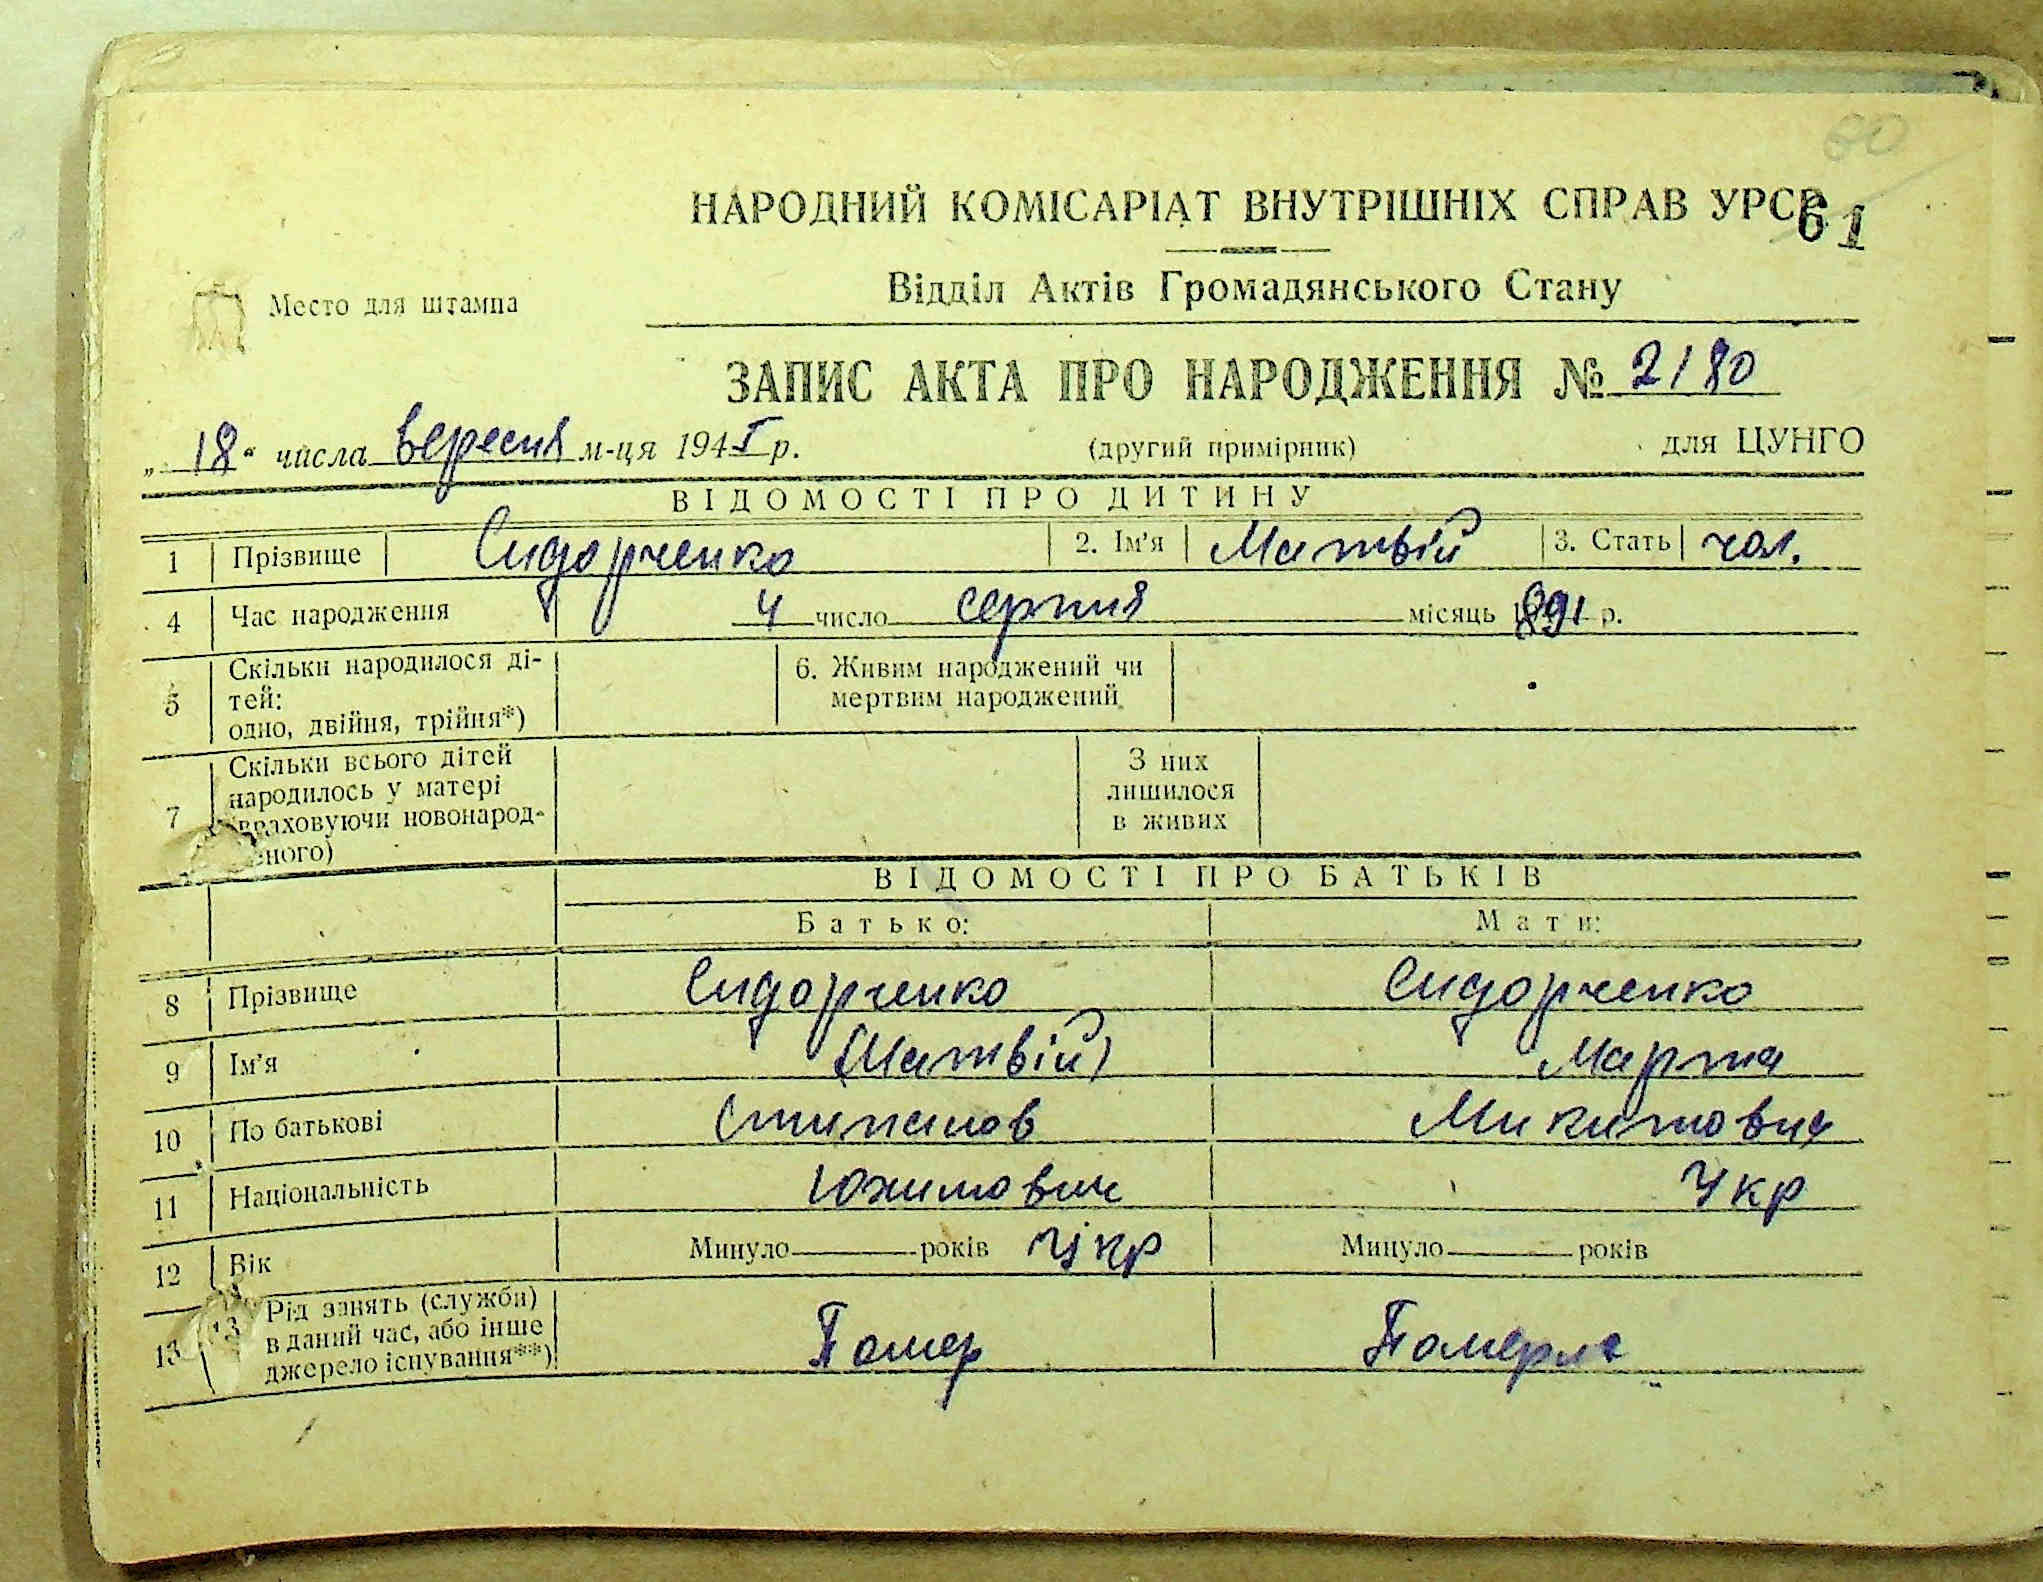 60
НАРОДНИЙ КОМІСАРІАТ ВНУТРІШНІХ СПРАВ УРСР
61
Место для штампа
Відділ Актів Громадянського Стану
ЗАПИС АКТА ПРО НАРОДЖЕННЯ № 2180
„ 18 “ числа вересня м-ця 1941 р. (другий примірник) для ЦУНГО
ВІДОМОСТІ ПРО ДИТИНУ
1 Прізвище Сидорченко 2. Ім'я Матвій 3. Стать чол.
4 Час народження 4 число серпня місяць 1891 р.
5 Скільки народилося ді-
тей:
одно, двійня, трійня*)
6. Живим народжений чи
мертвим народжений
7 Скільки всього дітей
народилось у матері
враховуючи новонарод-
еного)
З них
лишилося
в живих
ВІДОМОСТІ ПРО БАТЬКІВ
Батько: Мати:
8 Прізвище Сидорченко Сидорченко
9 Ім'я (Матвій) Марта
10 По батькові Степанов Микитовна
11 Національність Юхимович Укр
12 Вік Минуло років Укр Минуло років
13 13 Рід занять (служби)
в даний час, або інше
джерело існування**)
Помер Померла